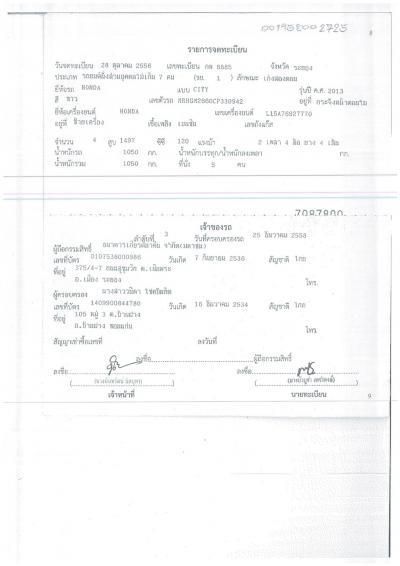 00195E00 2725
8
รายการจดทะเบียน
วันจดทะเบียน 28 ตุลาคม 2556 เลขทะเบียน กต 8685 จังหวัด ระยอง
ประเภท รถยนต์นั่งส่วนบุคคลไม่เกิน 7 คน (รย. 1 ) ลักษณะ เก๋งสองตอน
ยี่ห้อรถ HONDA แบบ CITY รุ่นปี ค.ศ. 2013
สี ขาว เลขตัวรถ อยู่ที่
ยี่ห้อเครื่องยนต์ HONDA เลขเครื่องยนต์ L15A76927770
อยู่ที่ ซ้ายเครื่อง เชื้อเพลิง เบนซิน เลขถังแก๊ส
จำนวน 4 สูบ 1497 ซีซี 120 แรงม้า 2 เพลา 4 ล้อ ยาง 4 เส้น
น้ำหนักรถ 1050 กก. น้ำหนักบรรทุก/น้ำหนักลงเพลา กก.
น้ำหนักรวม 1050 กก. ที่นั่ง 5 คน
7087800
เจ้าของรถ
ลำดับที่ 3 วันที่ครอบครองรถ 25 ธันวาคม 2558
ผู้ถือกรรมสิทธิ์ ธนาคาร จำกัด(มหาชน)
เลขที่บัตร 0107536000986 วันเกิด 7 กันยายน 2536 สัญชาติ ไทย
ที่อยู่ 375/4-7 ถนนสุขุมวิท ต.เนินพระ
อ.เมือง ระยอง โทร.
ผู้ครอบครอง นางสาววนิดา
เลขที่บัตร 1409900844780 วันเกิด 16 ธันวาคม 2534 สัญชาติ ไทย
ที่อยู่ 105 หมู่ 3 ต.บ้านฝาง
อ.บ้านฝาง ขอนแก่น โทร.
สัญญาเช่าซื้อเลขที่ ลงวันที่
ลงชื่อ ผู้ถือกรรมสิทธิ์
ลงชื่อ ลงชื่อ
เจ้าหน้าที่ นายทะเบียน
9